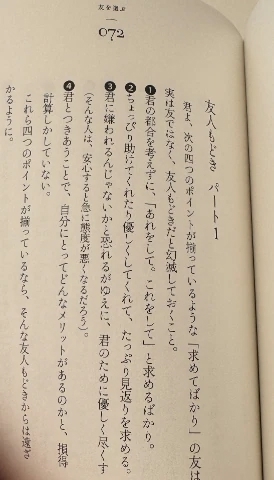 友を選ぶ
072
友人もどき パート1
君よ、次の四つのポイントが揃っているような「求めてばかり」の友は
実は友ではなく、友人もどきだと幻滅しておくこと。
❶君の都合を考えずに、「あれをして。これをして」と求めるばかり。
❷ちょっぴり助けてくれたり優しくしてくれて、たっぷり見返りを求める。
❸君に嫌われるんじゃないかと恐れるがゆえに、君のために優しく尽くす
(そんな人は、安心すると急に態度が悪くなるだろう)。
❹君とつきあうことで、自分にとってどんなメリットがあるのかと、損得
計算しかしていない。
これら四つのポイントが揃っているなら、そんな友人もどきからは遠ざ
かるように。